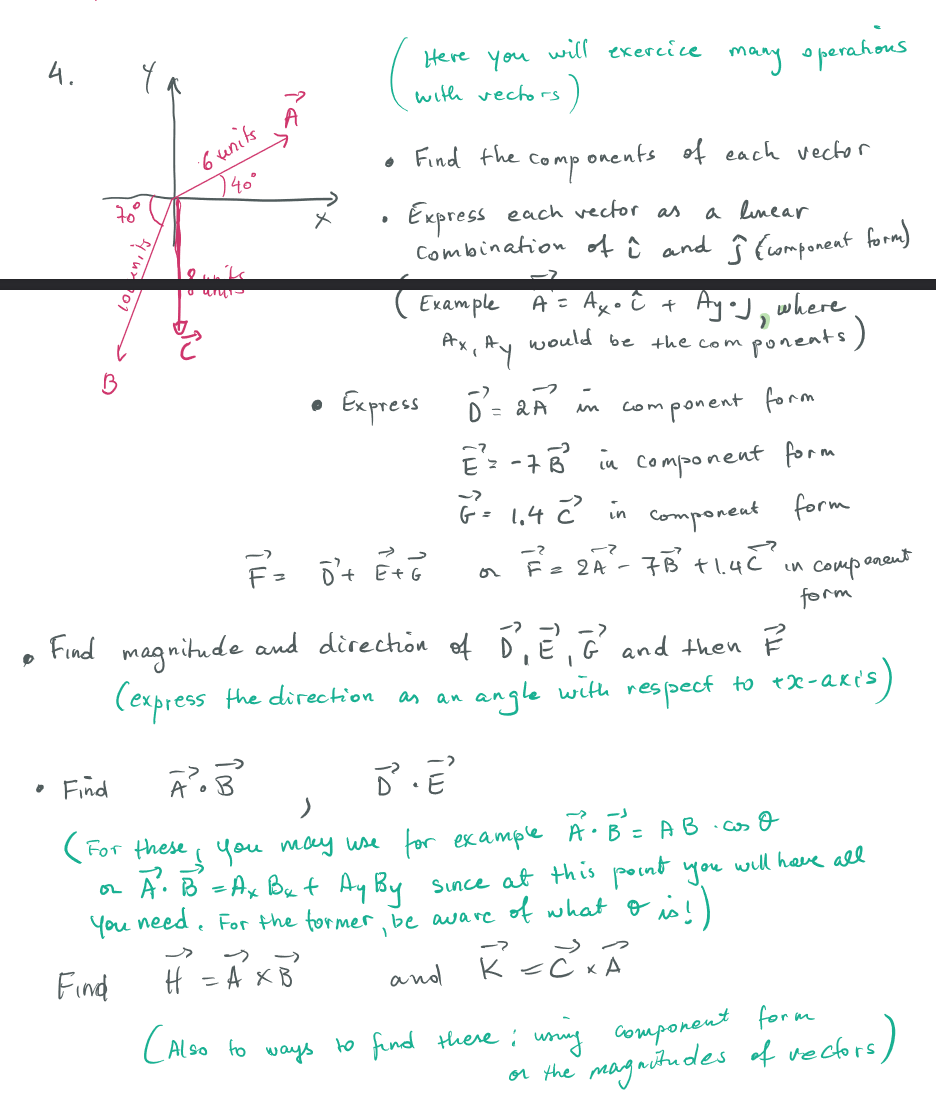 4.
Y
(Here you will exercice many operations
with vectors)
A
6 units
40°
70°
X
10 units
8 units
C
B
• Find the components of each vector
• Express each vector as a linear
combination of î and ĵ (component form)
(Example A = Ax • î + Ay • J, where
Ax, Ay would be the components)
• Express D = 2A in component form
E = -7B in component form
G = 1.4 C in component form
F = D + E + G or F = 2A - 7B + 1.4C in component
form
• Find magnitude and direction of D, E, G and then F
(express the direction as an angle with respect to +x-axis)
• Find A • B , D • E
(For these, you may use for example A • B = A B • cos θ
or A • B = Ax Bx + Ay By since at this point you will have all
you need. For the former, be aware of what θ is!)
Find H = A x B and K = C x A
(Also to ways to find there: using component form
or the magnitudes of vectors)